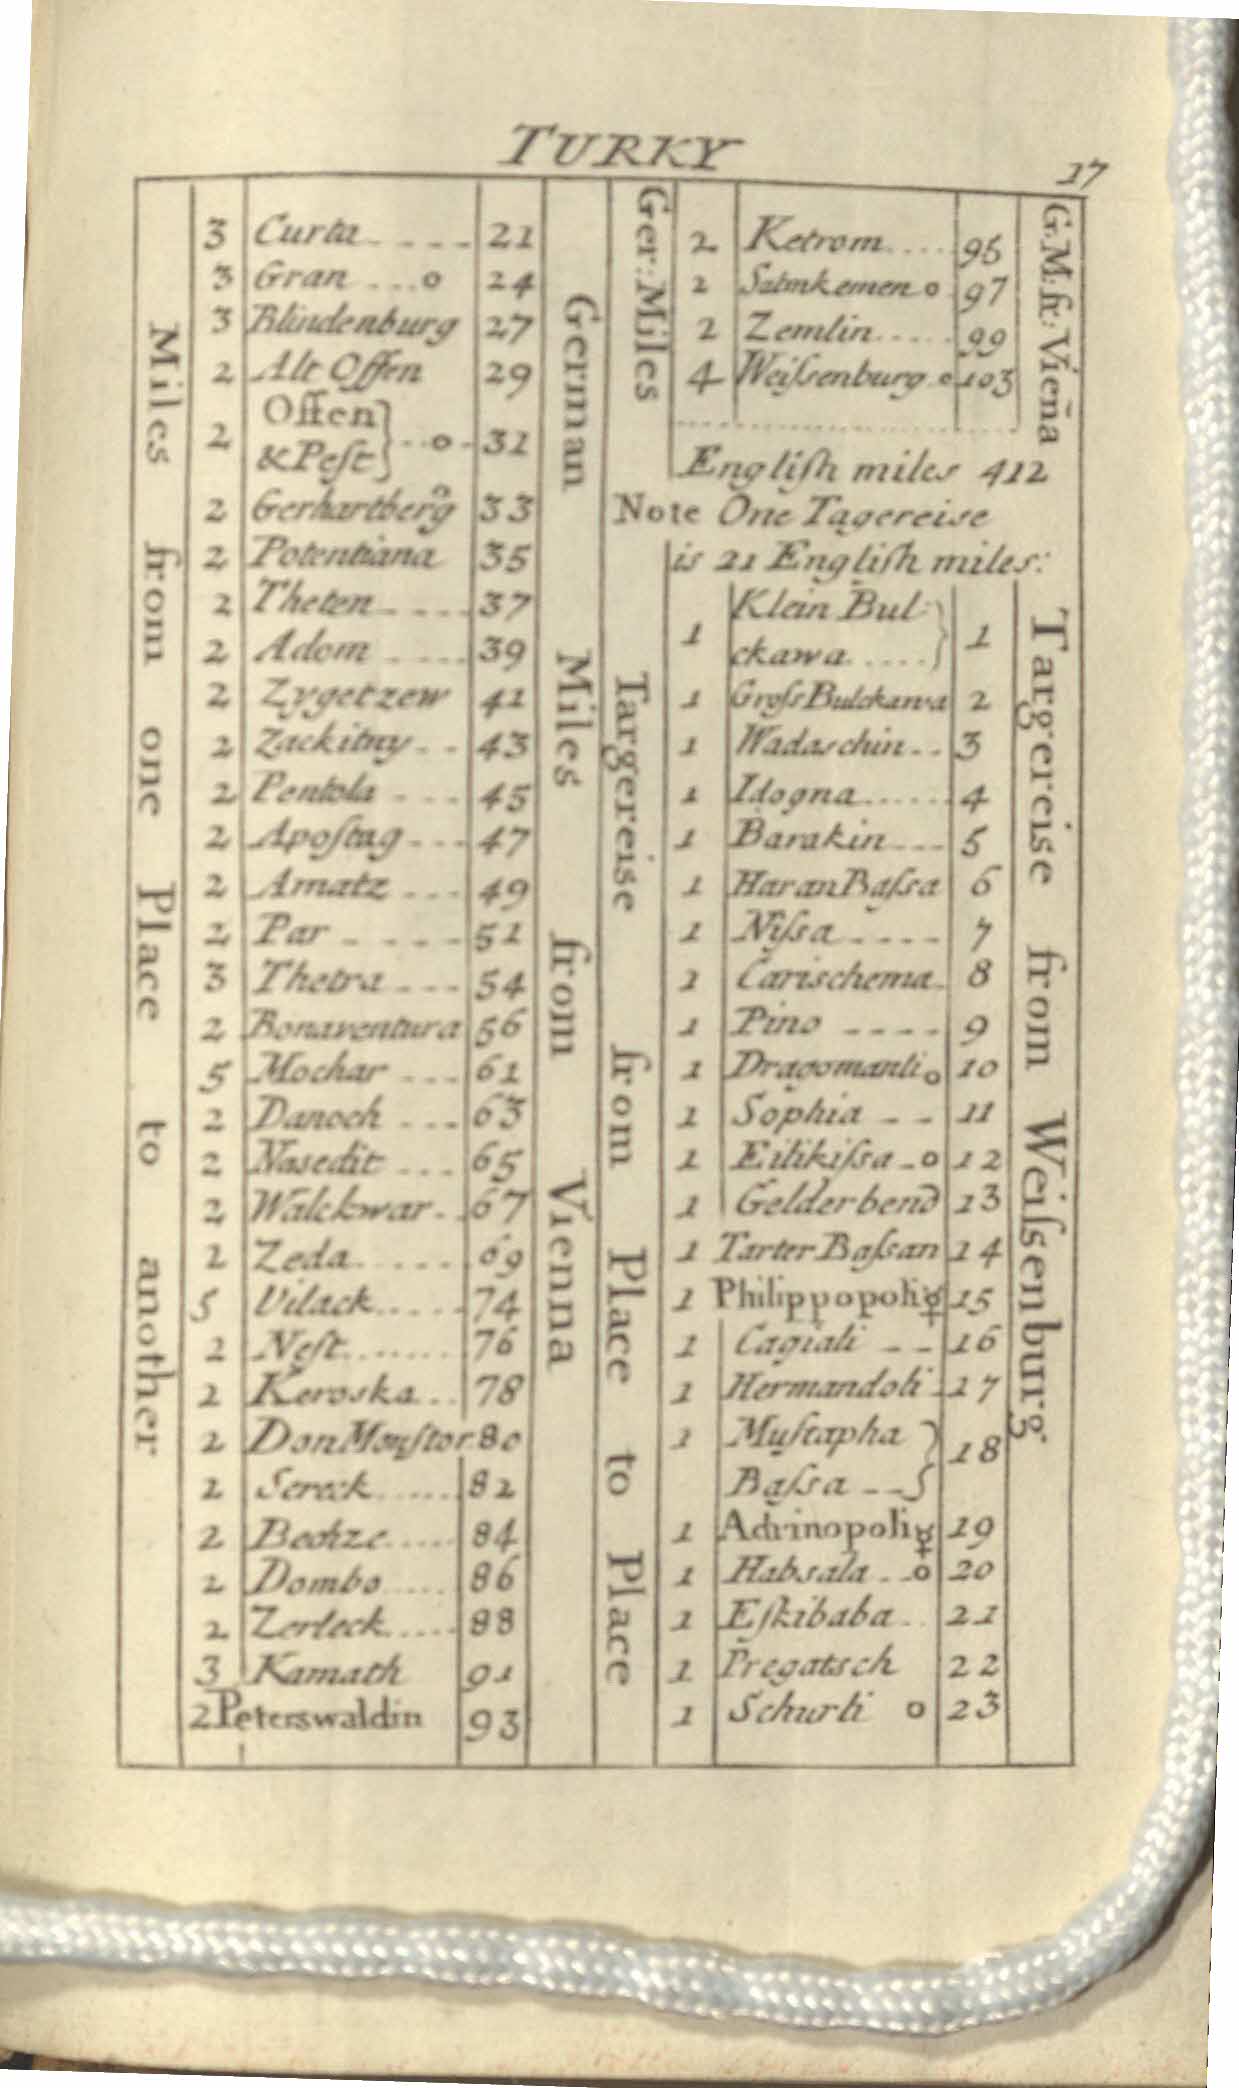 TURKY
17
Miles from one Place to another
German Miles from Vienna
3 Curta 21
3 Gran o 24
3 Blindenburg 27
2 Alt Offen 29
2 Offen & Peſt o 31
2 Gerhartberg o 33
2 Potentiana 35
2 Theten 37
2 Adom 39
2 Zygetzew 41
2 Zackitny 43
2 Pentola 45
2 Apoſtag 47
2 Amatz 49
2 Par 51
3 Thetra 54
2 Bonaventura 56
5 Mochar 61
2 Danoch 63
2 Nasedit 65
2 Walckwar 67
2 Zeda 69
5 Vilack 74
2 Neſt 76
2 Keroska 78
2 Don Monſtor 80
2 Sereck 82
2 Bechze 84
2 Dombo 86
2 Zerleck 88
3 Kamath 91
2 Peterswaldin 93
Ger: Miles
G. M: fr: Vieña
2 Ketrom 95
2 Satmkemen o 97
2 Zemlin 99
4 Weiſsenburg o 103
Engliſh miles 412
Note One Tagereise
is 21 Engliſh miles:
Targereise from Place to Place
Targereise from Weiſsenburg.
1 Klein Bul-
ckawa 1
1 Groſs Bulckawa 2
1 Wadaschin 3
1 Idogna 4
1 Barakin 5
1 Haran Baſsa 6
1 Niſsa 7
1 Carischema 8
1 Pino 9
1 Dragomanli o 10
1 Sophia 11
1 Eilikiſsa o 12
1 Gelderbend 13
1 Tarter Baſsan 14
1 Philippopoli ☿ 15
1 Cagiali 16
1 Hermandoli 17
1 Muſtapha
Baſsa 18
1 Adrinopoli ☿ 19
1 Habsala o 20
1 Eſkibaba 21
1 Pregatsch 22
1 Schurli o 23